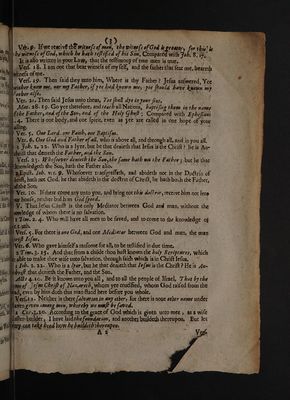 ( 3 )
Ver. 9. If we receive the witness of men, the witness of God is greater, for this is
the witness of God, which he hath testified of his Son, Compared with Joh. 8. 17.
It is also written in your Law, that the testimony of two men is true.
Vers. 18. I am one that bear witness of my self, and the father that sent me, beareth
witness of me.
Vers. 19. Then said they unto him, Where is thy Father? Jesus answered, Yee
neither know me, nor my Father, if yee had known me, yee should have known my
Father also.
Ver. 21. Then said Jesus unto them, Yee shall dye in your sins.
Mat. 28. 19. Go yee therefore, and teach all Nations, baptizing them in the name
of the Father, and of the Son, and of the Holy Ghost: Compared with Ephesians
4. 4. There is one body, and one spirit, even as yee are called in one hope of your
calling.
Ver. 5. One Lord, one Faith, one Baptism.
Ver. 6. One God and Father of all, who is above all, and through all, and in you all.
1 Joh. 2. 22. Who is a lyar, but he that denieth that Jesus is the Christ? he is An-
tichrist that denieth the Father, and the Son.
Vers. 23. Whosoever denieth the Son, the same hath not the Father; but he that
acknowledgeth the Son, hath the Father also.
2 Epist. Joh. v. 9. Whosoever transgresseth, and abideth not in the Doctrin of
Christ, hath not God, he that abideth in the doctrin of Christ, he hath both the Father,
and the Son.
Ver. 10. If there come any unto you, and bring not this doctrin, receive him not into
your house, neither bid him God speed.
That Jesus Christ is the only Mediator between God and man, without the
knowledge of whom there is no salvation.
1 Tim. 2. 4. Who will have all men to be saved, and to come to the knowledge of
the truth.
Vers. 5. For there is one God, and one Mediator between God and men, the man
Christ Jesus.
Ver. 6. Who gave himself a ransome for all, to be testified in due time.
2 Tim. 3. 15. And that from a childe thou hast known the holy Scriptures, which
are able to make thee wise unto salvation, through faith which is in Christ Jesus.
1 Joh. 2. 22. Who is a lyar, but he that denieth that Jesus is the Christ? He is An-
tichrist that denieth the Father, and the Son.
Acts 4. 10. Be it known unto you all, and to all the people of Israel, That by the
name of Jesus Christ of Nazareth, whom yee crucified, whom God raised from the
dead, even by him doth this man stand here before you whole.
Vers. 12. Neither is there salvation in any other, for there is none other name under
heaven given among men, whereby we must be saved.
1 Cor. 3. 10. According to the grace of God which is given unto mee, as a wise
Master-builder, I have laid the foundation, and another buildeth thereupon. But let
every one take heed how he buildeth thereupon.
A 2
Ver.